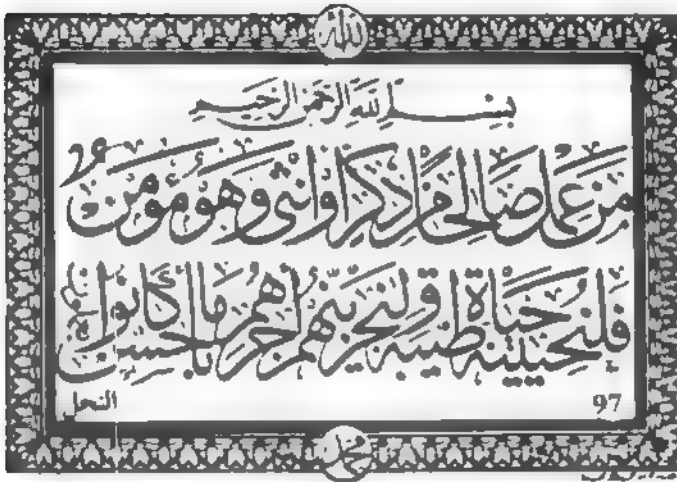 الله
بسم الله الرحمن الرحيم
من عمل صالحا من ذكر او انثى وهو مؤمن
فلنحيينه حياة طيبة ولنجزينهم اجرهم باحسن ما كانوا
النحل 97
محمد